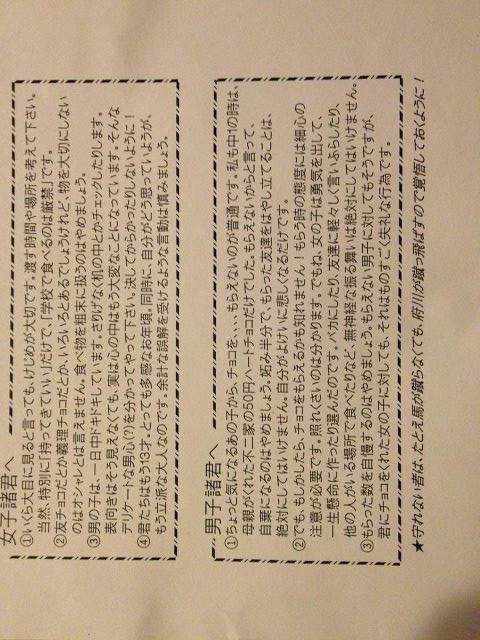 女子諸君へ
①いくら大目に見ると言っても、けじめが大切です。渡す時間や場所を考えて下さい。
当然、特別に「持ってきていい」だけで、「学校で食べるのは厳禁」です。
②友チョコだとか義理チョコだとか、いろいろとあるでしょうけれど、物を大切にしない
のはオシャレとは言えません。食べ物を粗末に扱うのはやめましょう。
③男の子は、一日中ドキドキしています。さりげなく机の中とかチェックしたりします。
表向きはそう見えなくても、実は心の中はもう大変なことになっています。そんな
デリケートな男心(?)を分かってやって下さい。決してからかったりしないように！
④君たちはもう13才。とっても多感なお年頃。同時に、自分がどう思っていようが、
もう立派な大人なのです。余計な誤解を受けるような言動は慎みましょう。
男子諸君へ
①ちょっと気になるあの子から、チョコを、、、もらえないのが普通です。私も中1の時は、
母親がくれた不二家の50円ハートチョコだけでした。もらえないからと言って、
自棄になるのはやめましょう。妬み半分で、もらった友達をはやし立てることは、
絶対にしてはいけません。自分がよけいに悲しくなるだけです。
②でも、もしかしたら、チョコをもらえるかも知れません！もらう時の態度には細心の
注意が必要です。照れくさいのは分かります。でもね、女の子は勇気を出して、
一生懸命に作ったり選んだのです。バカにしたり、友達に軽々しく言いふらしたり、
他の人がいる場所で食べたりなど、無神経な振る舞いは絶対にしてはいけません。
③もらった数を自慢するのはやめましょう。もらえない男子に対してもそうですが、
君にチョコをくれた女の子に対しても、それはものすごく失礼な行為です。
★守れない者は、たとえ馬が蹴らなくても、府川が蹴っ飛ばすので覚悟しておくように！